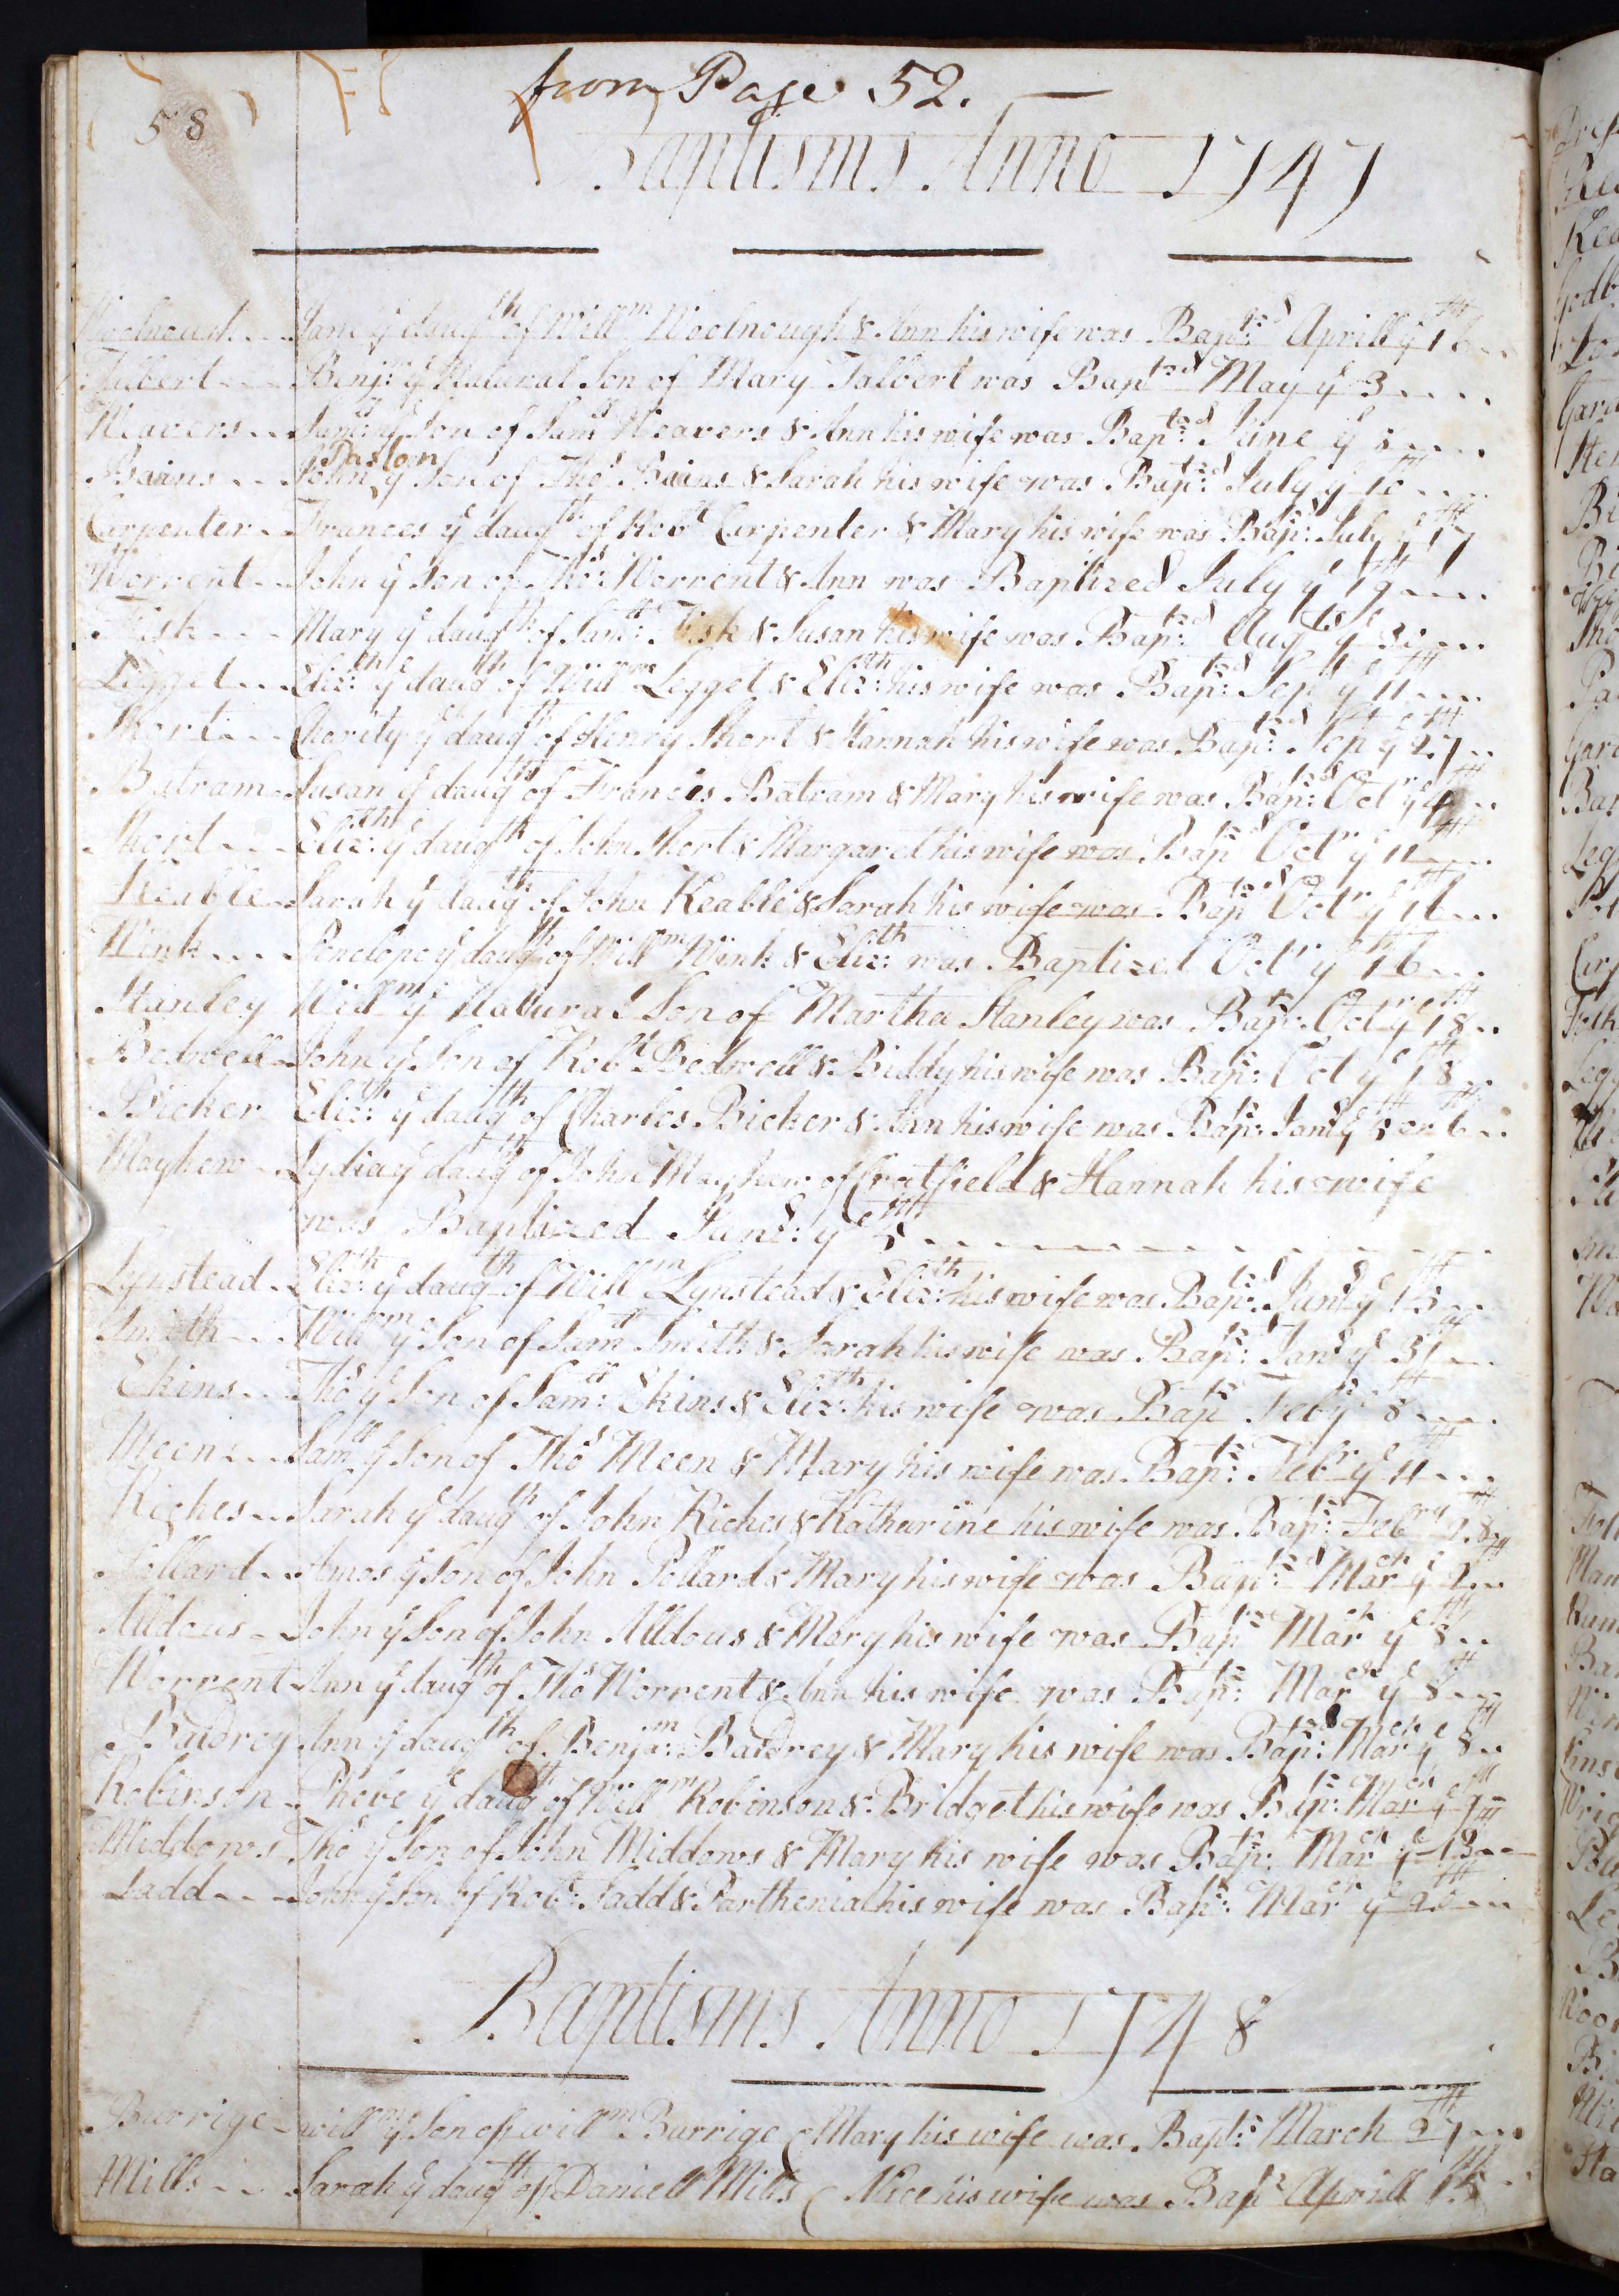 from Page 52.
58
Baptisms Anno 1747
Woolnough Jane ye daugth of Willm Woolnough & Ann his wife was Baptzd Aprill ye 16th
Talbert Benjn: ye Natural Son of Mary Talbert was Baptzd May ye 3
Weavers Saml: ye Son of Samll Weavers & Ann his wife was Baptzd June ye 8
Paston
Bains John ye Son of Thos Bains & Sarah his wife was Baptzd July ye 10th
Carpenter Frances ye daugth of Robt Carpenter & Mary his wife was Baptzd: July ye 17th
Worrent John ye Son of Thos: Worrent & Ann was Baptized July ye 19th
Fisk Mary ye daugth of Samll: Fisk & Susan his wife was Baptzd: Augst ye 30
Legget Elizth: ye daugth of Willm Legget & Elizth: his wife was Baptzd: Sept ye 11th
Short Charity ye daugth of Henry Short & Hannah his wife was Baptzd: Sept ye 27th
Batram Susan ye daugth of Francis Batram & Mary his wife was Baptzd: Octr ye 4th
Short Elizth: ye daugth of John Short & Margaret his wife was Baptzd Octr ye 11th
Keable Sarah ye daugth of John Keable & Sarah his wife was Baptzd Octr ye 16th
Wink Penelope ye daugth of Willm Wink & Elizth: was Baptized Octr ye 16th
Stanley Willm ye Natural Son of Martha Stanley was Baptz: Octr ye 18th
Bedwell John ye Son of Robt Bedwell & Biddy his wife was Baptz: Oct ye 18th
Bicker Elizth: ye daugth of Charles Bicker & Ann his wife was Baptz: Jany ye 5th or 6th
Mayhew Lydia ye daugth of John Mayhew of Cratfield & Hannah his wife
was Baptized Jany: ye 5th
Lynstead Elizth: ye daugth of Willm Lynstead & Elizth: his wife was Baptzd: Jany ye 15th
Smith Willm ye Son of Samll Smith & Sarah his wife was Baptz: Jany ye 31st
Ekins Thos ye Son of Samll: Ekins & Elizth: his wife was Baptz Feby ye 8th
Meen Samll ye Son of Thos Meen & Mary his wife was Baptz: Febr ye 11th
Riches Sarah ye daugth of John Riches & Katharine his wife was Baptz: Febry 28th
Pollard Amos ye Son of John Pollard & Mary his wife was Baptzd: March ye 2th
Alldous John ye Son of John Alldous & Mary his wife was Baptz: March ye 8th
Worrent Ann ye daugth of Thos Worrent & Ann his wife was Baptz: March ye 8th
Baldrey Ann ye daugth of Benjamn: Baldrey & Mary his wife was Baptzd: March ye 8th
Robinson Phebe ye daugth of Willm Robinson & Bridget his wife was Baptz: March ye 9th
Middows Thos ye Son of John Middows & Mary his wife was Baptz: March ye 13th
Ladd John ye Son of Robt: Ladd & Parthenia his wife was Baptz: March ye 20th
Baptisms Anno 1748
Burrige willm ye Son of willm Burrige & Mary his wife was Baptz: March 27th
Mills Sarah ye daugth of Daniell Mills & Alice his wife was Baptz Aprill 15th